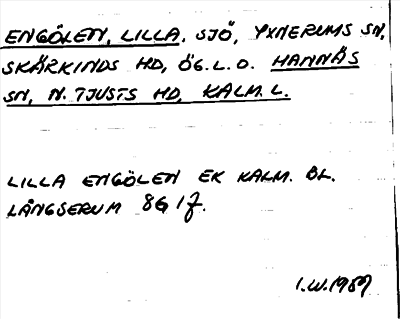 ENGÖLEN, LILLA, SJÖ, YXNERUMS SN,
SKÄRKINDS HD, ÖG. L. O. HANNÄS
SN, N. TJUSTS HD, KALM. L.
LILLA ENGÖLEN EK KALM. BL.
LÅNGSERUM 8G 1f.
I.W. 1989